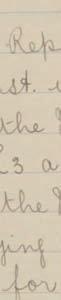 Rep
st.
the
£3 a
the
ing
for